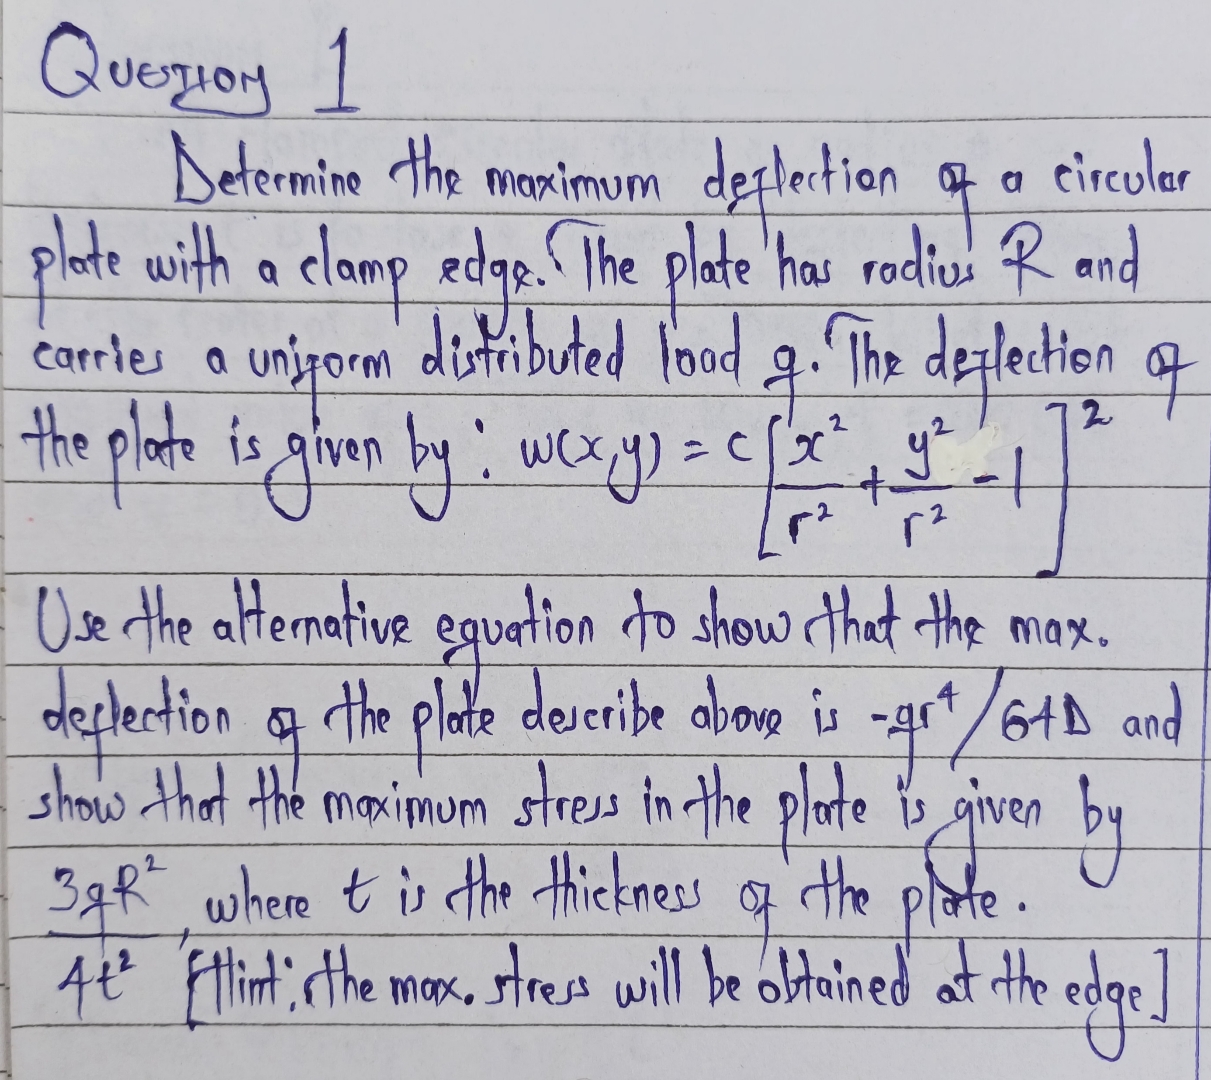 QUESTION 1
Determine the maximum deflection of a circular
plate with a clamp edge. The plate has radius R and
carries a uniform distributed load q. The deflection of
the plate is given by: w(x,y) = c[x²/r² + y²/r² - 1]²
Use the alternative equation to show that the max.
deflection of the plate describe above is -qr⁴/64D and
show that the maximum stress in the plate is given by
3qR²/4t², where t is the thickness of the plate.
[Hint: the max. stress will be obtained at the edge]